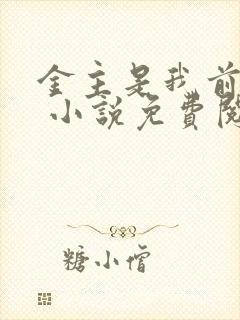 金主是我前
小說免費閱
糖小僧